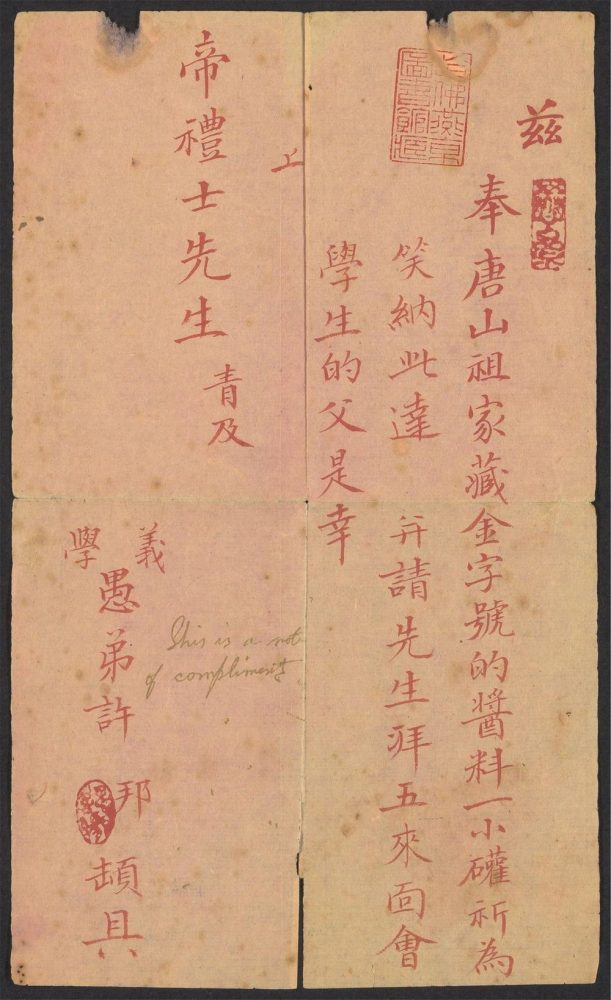 茲
奉唐山祖家藏金字號的醬料一小礶祈為
笑納此達 并請先生拜五來面會
學生的父是幸
上
帝禮士先生 青及
義學
愚弟許邦頓具
This is a note
of compliments